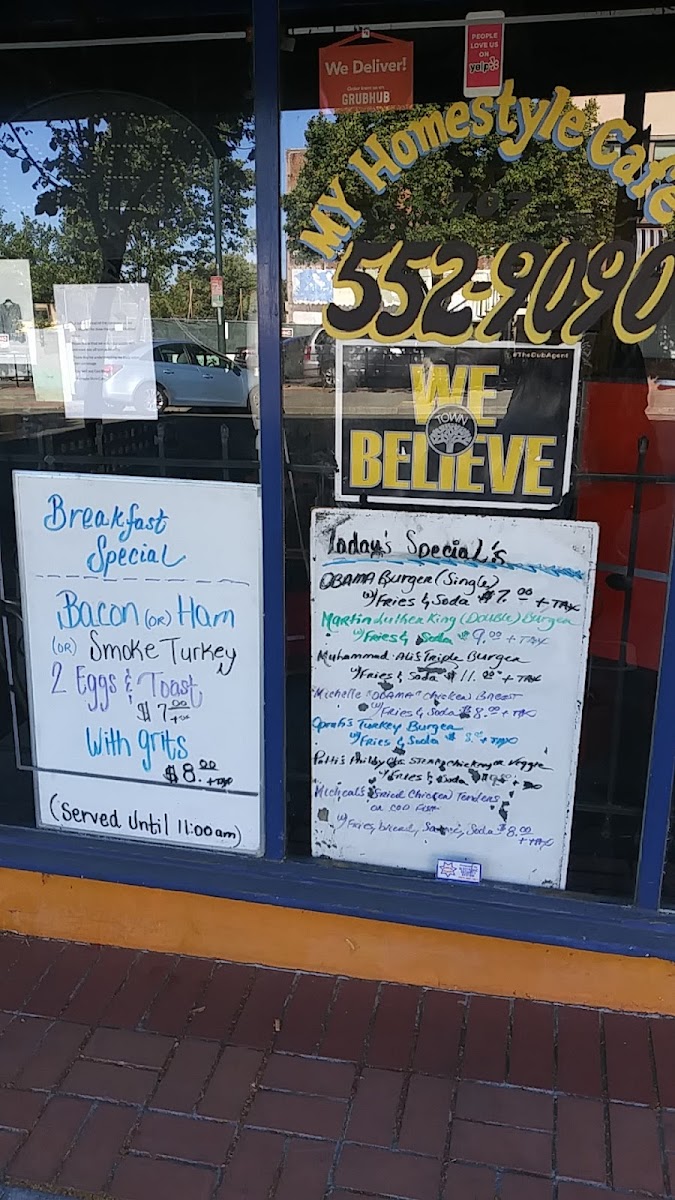 We Deliver!
Order from us on
GRUBHUB
PEOPLE
LOVE US
ON
yelp
MY Homestyle Cafe
707
552-9090
#TheDubAgent
WE
TOWN
BELIEVE
Breakfast
Special
Bacon (OR) Ham
(OR) Smoke Turkey
2 Eggs & Toast
$7.00
+TAX
With grits
$8.00
+TAX
(Served Until 11:00am)
Today's Special's
OBAMA Burger (Single)
w/Fries & Soda $7.00 + TAX
Martin Luther King (Double) Burger
w/Fries & Soda $9.00 + TAX
Muhammad Ali's Triple Burger
w/Fries & Soda $11.00 + TAX
Michelle "OBAMA" Chicken
w/Fries & Soda $8.00 + TAX
Oprah's Turkey Burger
w/Fries & Soda $ + TAX
Patti's Philly Steak, Chicken or Veggie
w/Fries & Soda
Micheal's Fried Chicken Tenders
or COD Fish
w/Fries, bread, Soda $8.00
+ TAX